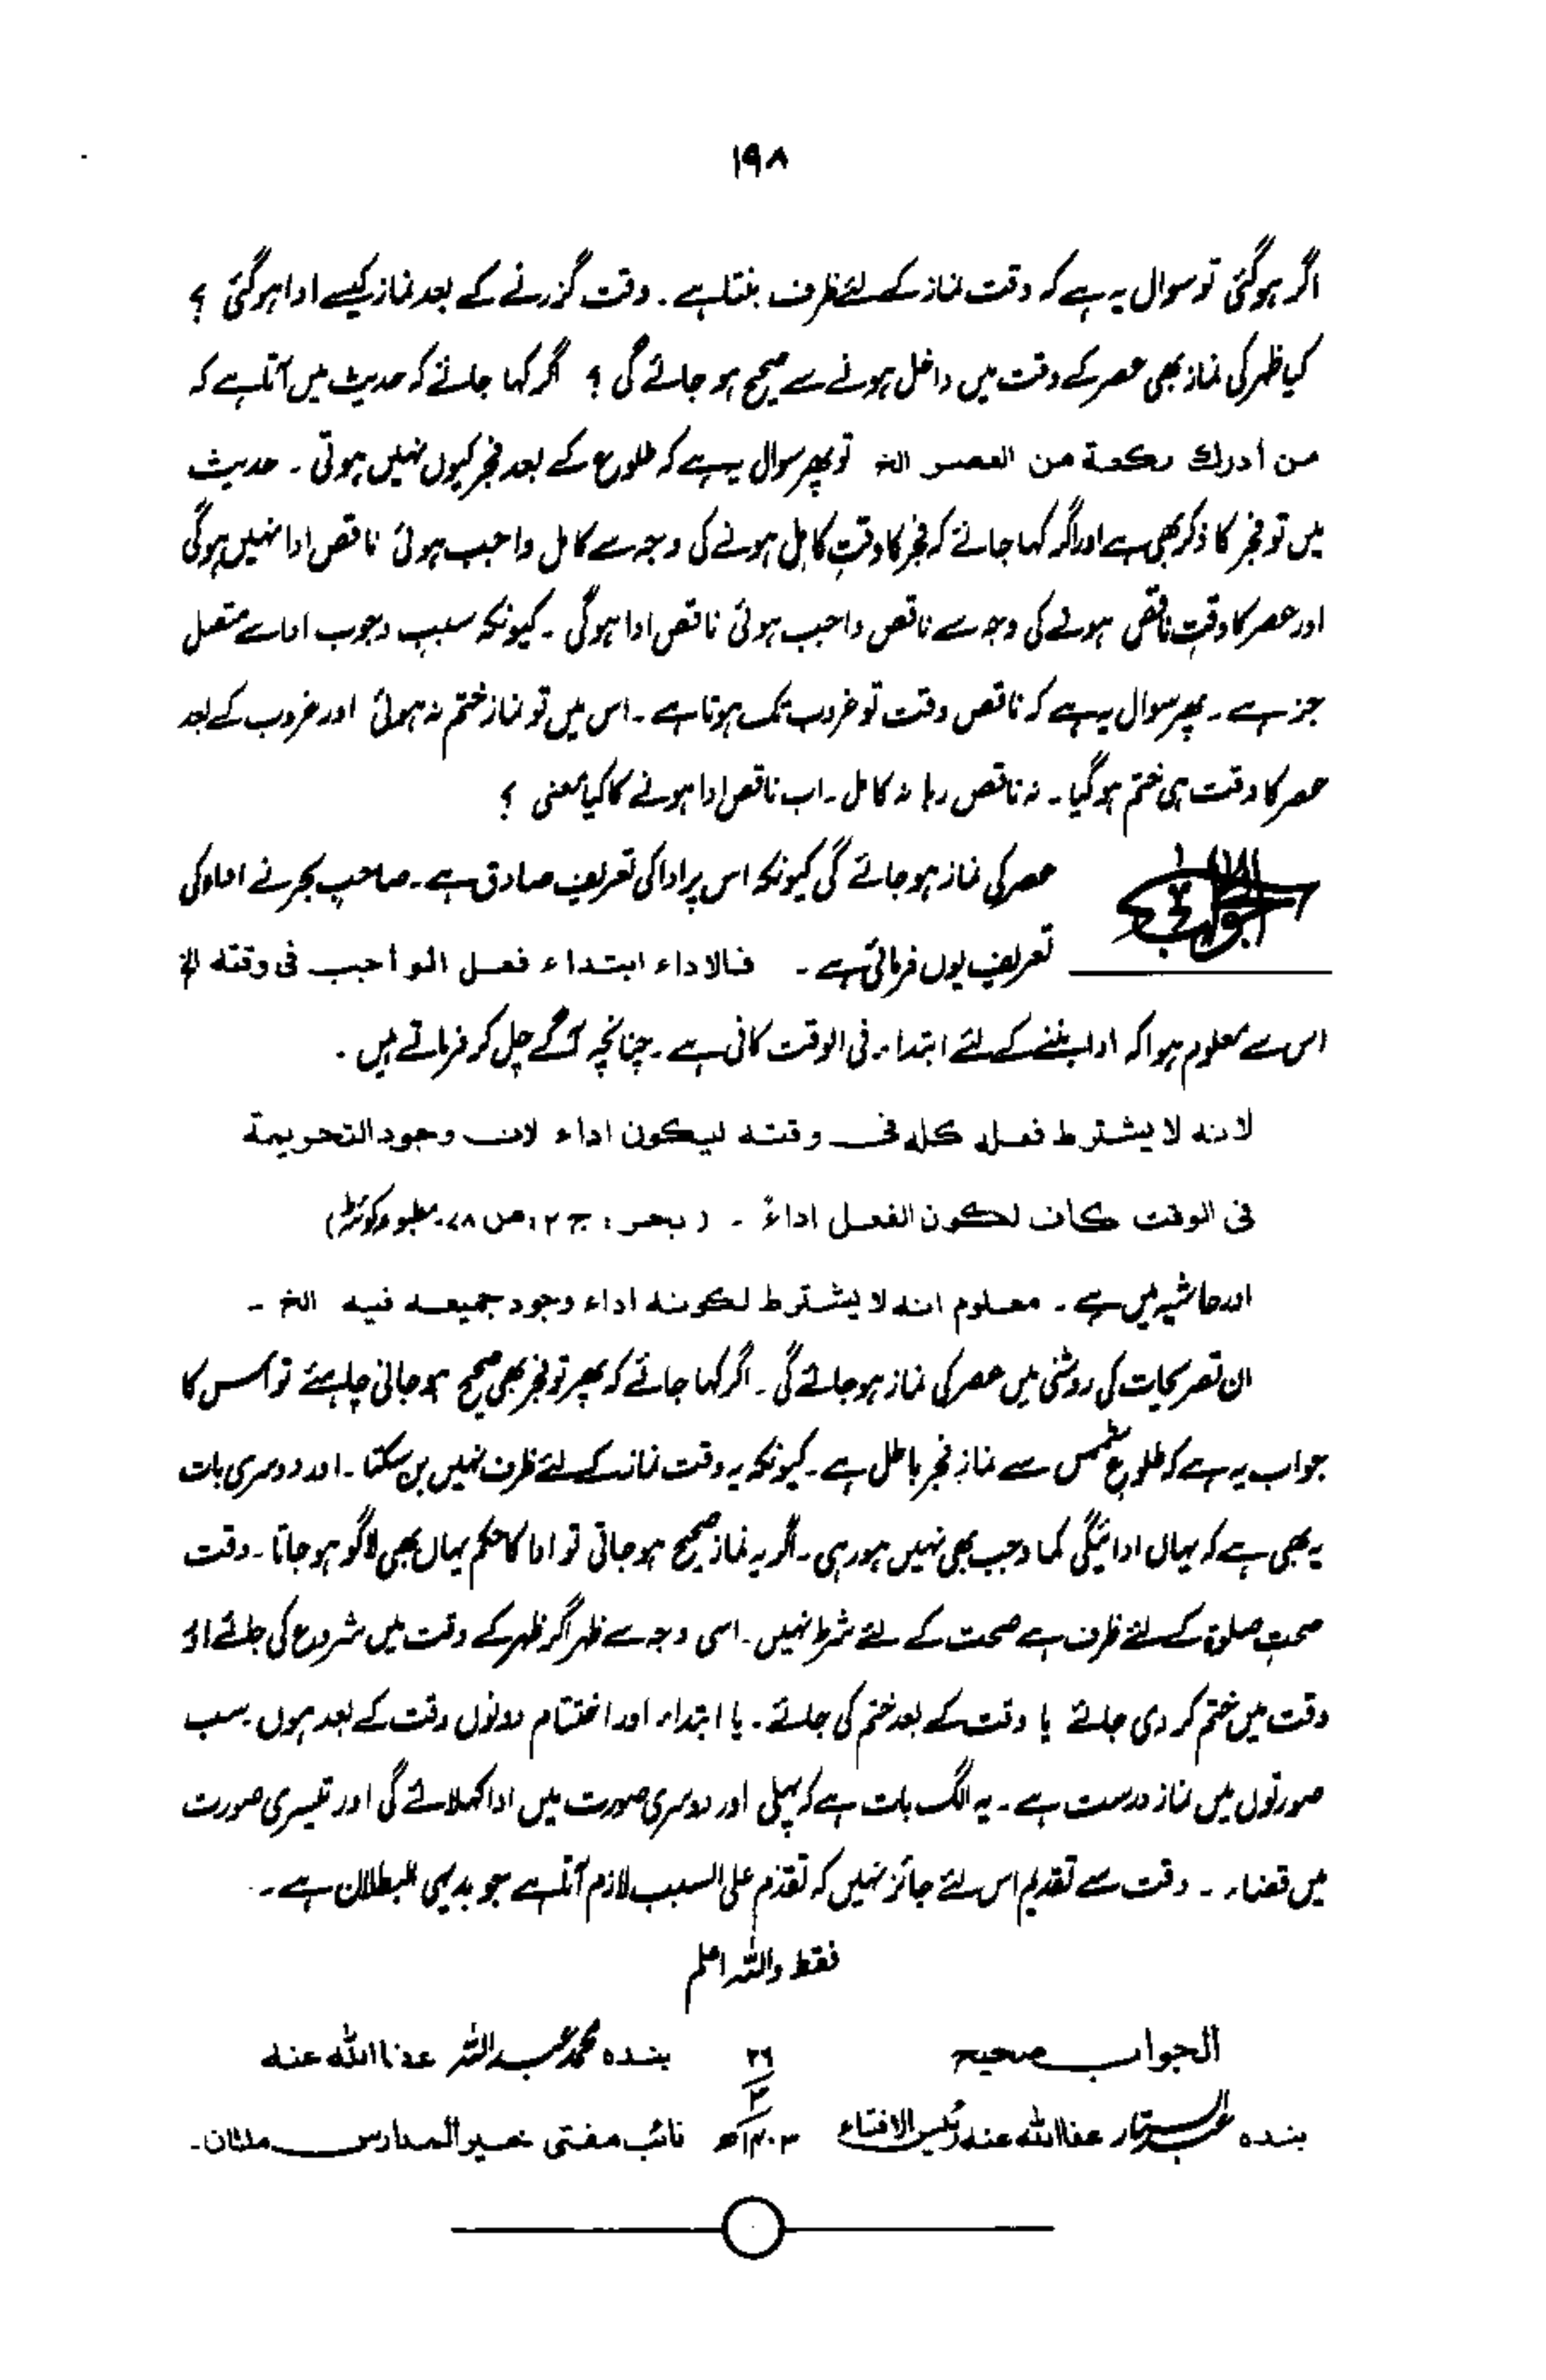 ۱۹۸
اگر ہوگئی تو سوال یہ ہے کہ وقت نماز کے لئے ظرف بنتا ہے ۔ وقت گزرنے کے بعد نماز کیسے ادا ہوگئی ؟
کیا ظہر کی نماز بھی عصر کے وقت میں داخل ہونے سے صحیح ہو جائے گی ؟ اگر کہا جائے کہ حدیث میں آتا ہے کہ
من أدرك ركعة من العصر الخ تو پھر سوال یہ ہے کہ طلوع کے بعد فجر کیوں نہیں ہوتی ۔ حدیث
میں تو فجر کا ذکر بھی ہے اور اگر کہا جائے کہ فجر کا وقتِ کامل ہونے کی وجہ سے کامل واجب ہوئی ناقص ادا نہیں ہوگی
اور عصر کا وقتِ ناقص ہونے کی وجہ سے ناقص واجب ہوئی ناقص ادا ہوگی ۔ کیونکہ سببِ وجوب ادا سے متصل
جز ہے ۔ پھر سوال یہ ہے کہ ناقص وقت تو غروب تک ہوتا ہے ۔ اس میں تو نماز ختم نہ ہوئی اور غروب کے بعد
عصر کا وقت ہی ختم ہو گیا ۔ نہ ناقص رہا نہ کامل ۔ اب ناقص ادا ہونے کا کیا معنی ؟
الجواب عصر کی نماز ہو جائے گی کیونکہ اس پر ادا کی تعریف صادق ہے ۔ صاحبِ بحر نے اداء کی
تعریف یوں فرمائی ہے ۔ فالاداء ابتداء فعل الواجب فى وقته الخ
اس سے معلوم ہوا کہ ادا بننے کے لئے ابتداء فی الوقت کافی ہے ۔ چنانچہ آگے چل کر فرماتے ہیں ۔
لانه لا يشترط فعله كله فى وقته ليكون اداء لان وجود التحريمة
فى الوقت كاف لكون الفعل اداءً ۔ ( بحر : ج ۲ : ص ۷۸ ۔ مطبوعہ کوئٹہ )
اور حاشیہ میں ہے ۔ معلوم انه لا يشترط لكونه اداء وجود جميعه فيه الخ ۔
ان تصریحات کی روشنی میں عصر کی نماز ہو جائے گی ۔ اگر کہا جائے کہ پھر تو فجر بھی صحیح ہو جانی چاہیئے تو اس کا
جواب یہ ہے کہ طلوعِ شمس سے نمازِ فجر باطل ہے ۔ کیونکہ یہ وقت نماز کے لئے ظرف نہیں بن سکتا ۔ اور دوسری بات
یہ بھی ہے کہ یہاں ادائیگی کما وجب بھی نہیں ہو رہی ۔ اگر یہ نماز صحیح ہو جاتی تو ادا کا حکم یہاں بھی لاگو ہو جاتا ۔ وقت
صحتِ صلوٰۃ کے لئے ظرف ہے صحت کے لئے شرط نہیں ۔ اسی وجہ سے ظہر اگر ظہر کے وقت میں شروع کی جائے اور
وقت میں ختم کر دی جائے یا وقت کے بعد ختم کی جائے ۔ یا ابتداء اور اختتام دونوں وقت کے بعد ہوں ۔ سب
صورتوں میں نماز درست ہے ۔ یہ الگ بات ہے کہ پہلی اور دوسری صورت میں ادا کہلائے گی اور تیسری صورت
میں قضاء ۔ وقت سے تقدیم اس لئے جائز نہیں کہ تقدم علی السبب لازم آتا ہے جو بدیہی البطلان ہے ۔
فقط واللہ اعلم
الجواب صحیح ۲۶ بندہ محمد عبداللہ عفا اللہ عنہ
بندہ عبدالستار عفا اللہ عنہ رئیس الافتاء ۱۴۰۳ھ نائب مفتی خیر المدارس ملتان ۔